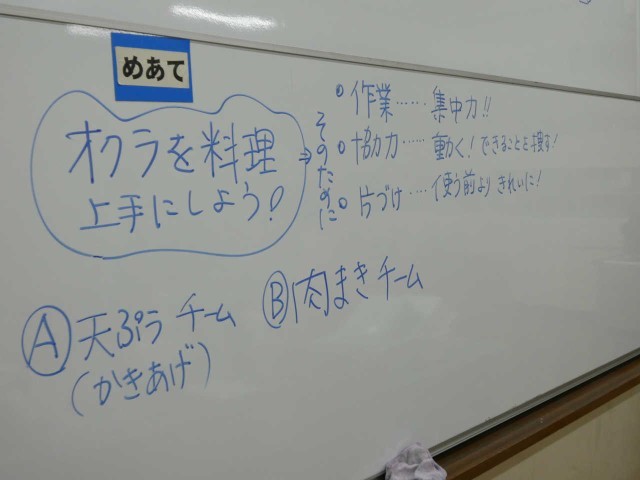 めあて
オクラを料理
上手にしよう!
⇒
そのために
○作業……集中力!!
○協力……動く!できることを捜す!
○片づけ……使う前よりきれいに!
Ⓐ天ぷらチーム
(かきあげ)
Ⓑ肉まきチーム